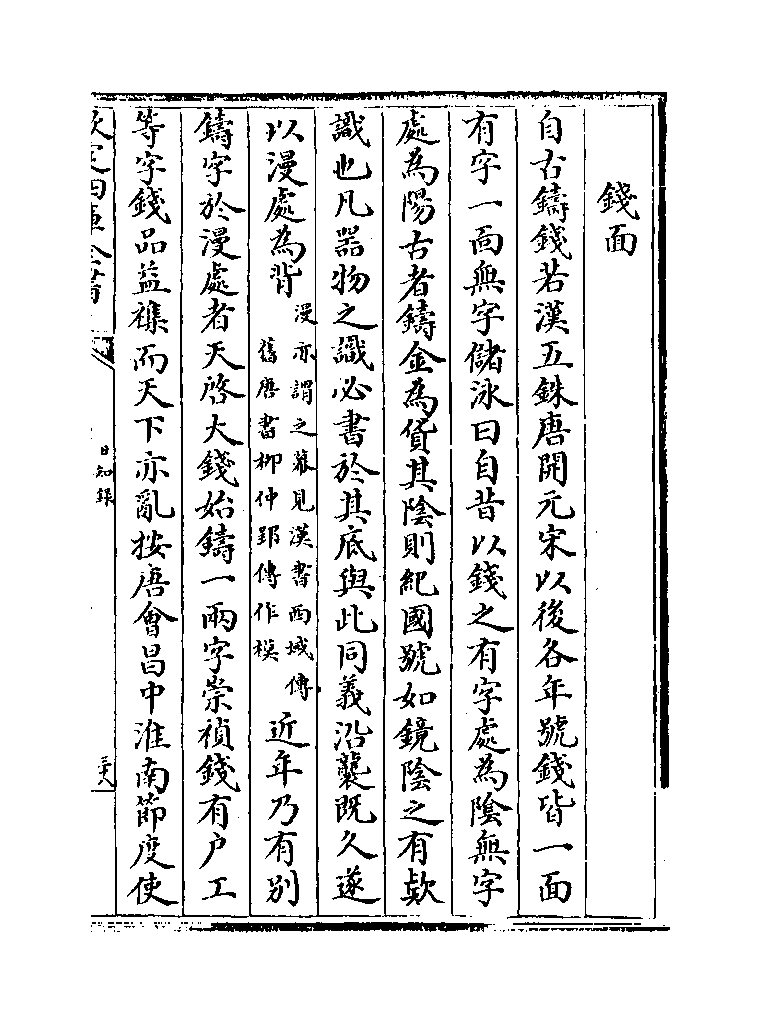 錢面
自古鑄錢若漢五銖唐開元宋以後各年號錢皆一面
有字一面無字儲泳曰自昔以錢之有字處為陰無字
處為陽古者鑄金為貨其陰則紀國號如鏡陰之有欵
識也凡器物之識必書於其底與此同義沿襲既久遂
以漫處為背漫亦謂之幕見漢書西域傳舊唐書柳仲郢傳作模近年乃有別
鑄字於漫處者天啓大錢始鑄一兩字崇禎錢有户工
等字錢品益襍而天下亦亂按唐會昌中淮南節度使
欽定四庫全書
日知錄
三十八